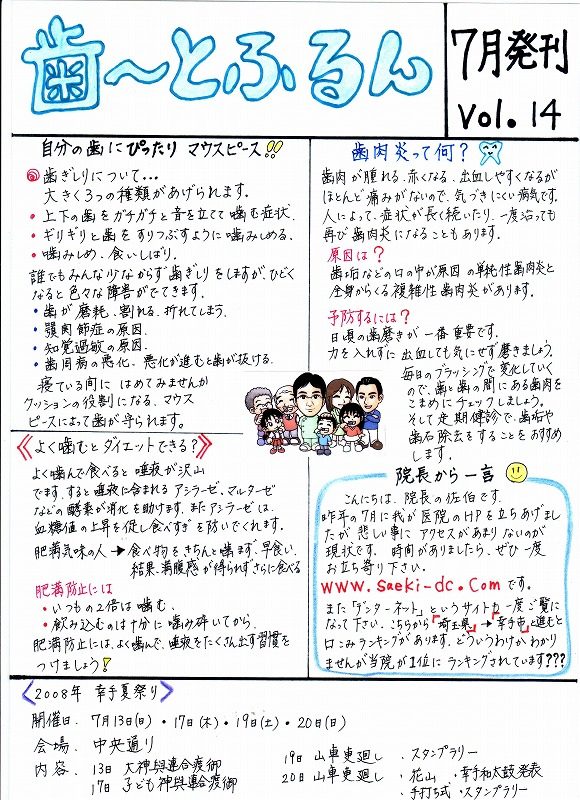 歯〜とふるん
7月発刊
Vol. 14
自分の歯にぴったり マウスピース!!
歯ぎしりについて...
大きく3つの種類があげられます。
・上下の歯をガチガチと音を立てて噛む症状.
・ギリギリと歯をすりつぶすように噛みしめる.
・噛みしめ、食いしばり.
誰でもみんな少なからず歯ぎしりをしますが、ひどく
なると色々な障害がでてきます.
・歯が磨耗、割れる、折れてしまう.
・顎関節症の原因.
・知覚過敏の原因.
・歯周病の悪化、悪化が進むと歯が抜ける.
寝ている間に はめてみませんか
クッションの役割になる、マウス
ピースによって歯が守られます。
《よく噛むとダイエットできる?》
よく噛んで食べると 唾液が沢山
でます。すると唾液に含まれる アシラーゼ、マルターゼ
などの酵素が消化を助けます。またアシラーゼは.
血糖値の上昇を促し食べすぎを防いでくれます.
肥満気味の人 → 食べ物をきちんと噛まず、早食い.
結果、満腹感が得られずさらに食べる
肥満防止には
・いつもの2倍は噛む.
・飲み込むのは十分に噛み砕いてから.
肥満防止には、よく噛んで、唾液をたくさん出す習慣を
つけましょう!
歯肉炎って何?
歯肉が腫れる.赤くなる.出血しやすくなるが
ほとんど痛みがないので、気づきにくい病気です.
人によって、症状が長く続いたり、一度治っても
再び歯肉炎になることもあります.
原因は?
歯垢などの口の中が原因の単純性歯肉炎と
全身からくる複雑性歯肉炎があります.
予防するには?
日頃の歯磨きが一番重要です.
力を入れずに出血しても気にせず磨きましょう.
毎日のブラッシングで変化していく
ので、歯と歯の間にある歯肉を
こまめにチェックしましょう。
そして定期健診で、歯垢や
歯石除去をすることをおすすめ
します.
院長から一言
こんにちは、院長の佐伯です.
昨年の7月に我が医院のHPを立ちあげまし
たが悲しい事にアクセスがあまりないのが
現状です. 時間がありましたら、ぜひ一度
お立ち寄り下さい.
www.saeki-dc.comです.
また「デンターネット」というサイトも一度ご覧に
なって下さい. こちらから「埼玉県」→「幸手市」と進むと
口こみランキングがあります. どういうわけかわかり
ませんが当院が1位にランキングされています???
〈2008年 幸手夏祭り〉
開催日. 7月13日(日)・17日(木)・19日(土)・20日(日)
会場. 中央通り
内容. 13日 大神輿連合渡御
17日 子ども神輿連合渡御
19日 山車曳廻し ・スタンプラリー
20日 山車曳廻し ・花山 ・幸手和太鼓発表
・手打ち式 ・スタンプラリー